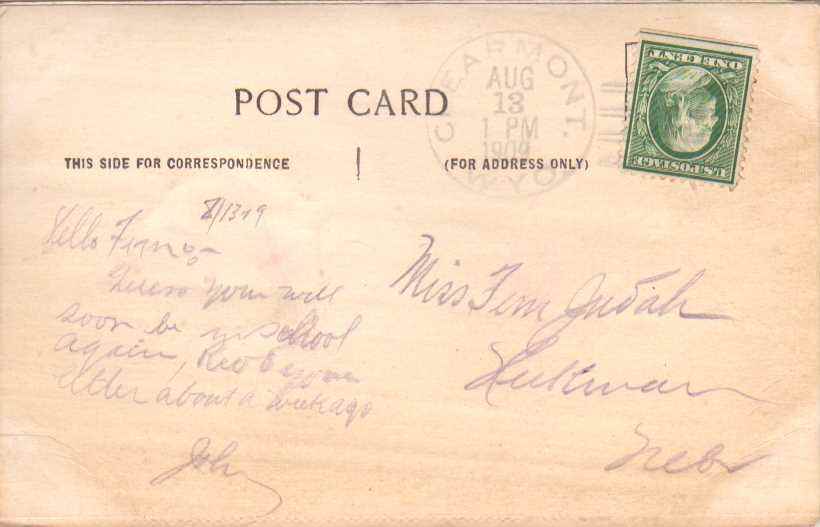 CLEARMONT. WYO.
AUG
13
1 PM
1909
ONE CENT
U.S. POSTAGE
POST CARD
THIS SIDE FOR CORRESPONDENCE
(FOR ADDRESS ONLY)
8/13-9
Hello Fern:-
Guess you will
soon be in school
again, Rec'd your
letter about a week ago
John
Miss Fern Judah
Nebr